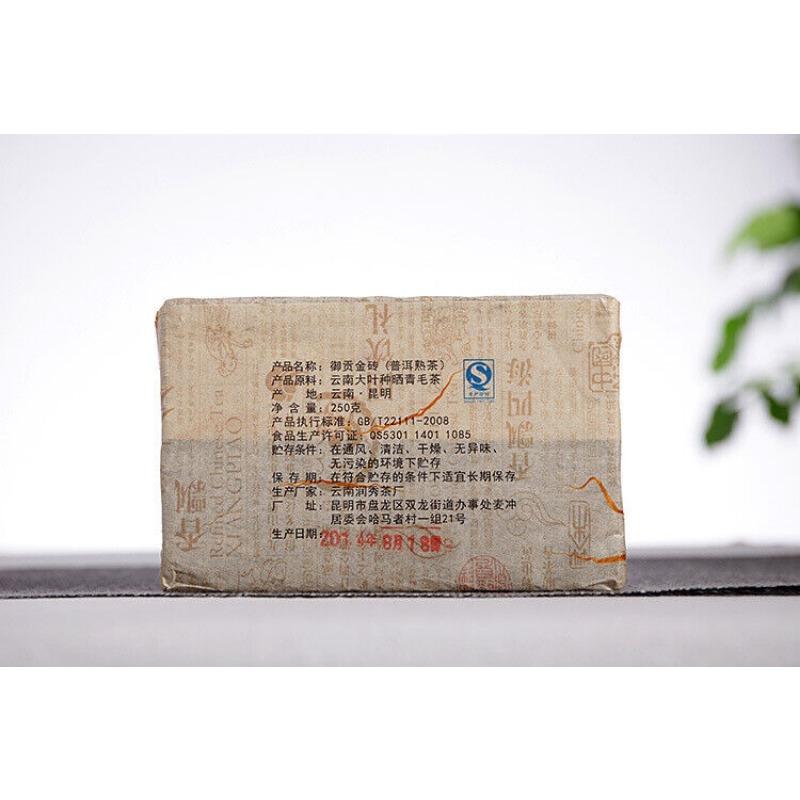 产品名称：御贡金砖（普洱熟茶）
产品原料：云南大叶种晒青毛茶
产　　地：云南·昆明
净 含 量：250克
产品执行标准：GB/T22111-2008
食品生产许可证：QS5301 1401 1085
贮存条件：在通风、清洁、干燥、无异味、
无污染的环境下贮存
保 存 期：在符合贮存的条件下适宜长期保存
生产厂家：云南润秀茶厂
厂　　址：昆明市盘龙区双龙街道办事处麦冲
居委会哈马者村一组21号
生产日期：2014年8月18日
香飘四海
XIANGPIAO